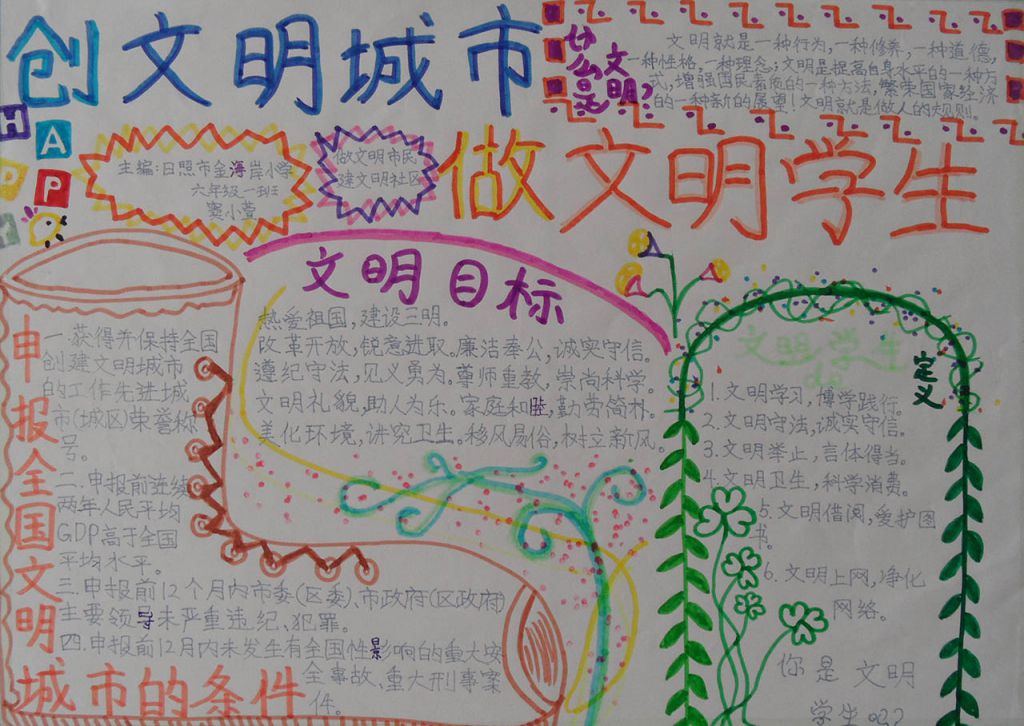 创文明城市
什么是文明?
文明就是一种行为,一种修养,一种道德,
一种性格,一种理念;文明是提高自身水平的一种方
式,增强国民素质的一种方法,繁荣国家经济
的一种新的展望!文明就是做人的规则。
HAPPH
主编:日照市金海岸小学
六年级一班
窦小萱
做文明市民
建文明社区
做文明学生
文明目标
热爱祖国,建设三明。
改革开放,锐意进取。廉洁奉公,诚实守信。
遵纪守法,见义勇为。尊师重教,崇尚科学。
文明礼貌,助人为乐。家庭和睦,勤劳简朴。
美化环境,讲究卫生。移风易俗,树立新风。
申报全国文明
城市的条件
一.获得并保持全国
创建文明城市
的工作先进城
市(城区)荣誉称
号。
二.申报前连续
两年人民平均
GDP高于全国
平均水平。
三.申报前12个月内市委(区委)、市政府(区政府)
主要领导未严重违纪、犯罪。
四.申报前12月内未发生有全国性影响的重大安
全事故、重大刑事案
件。
文明学生
的
定义
1.文明学习,博学践行。
2.文明守法,诚实守信。
3.文明举止,言体得当。
4.文明卫生,科学消费。
5.文明借阅,爱护图
书。
6.文明上网,净化
网络。
你是文明
学生吗?